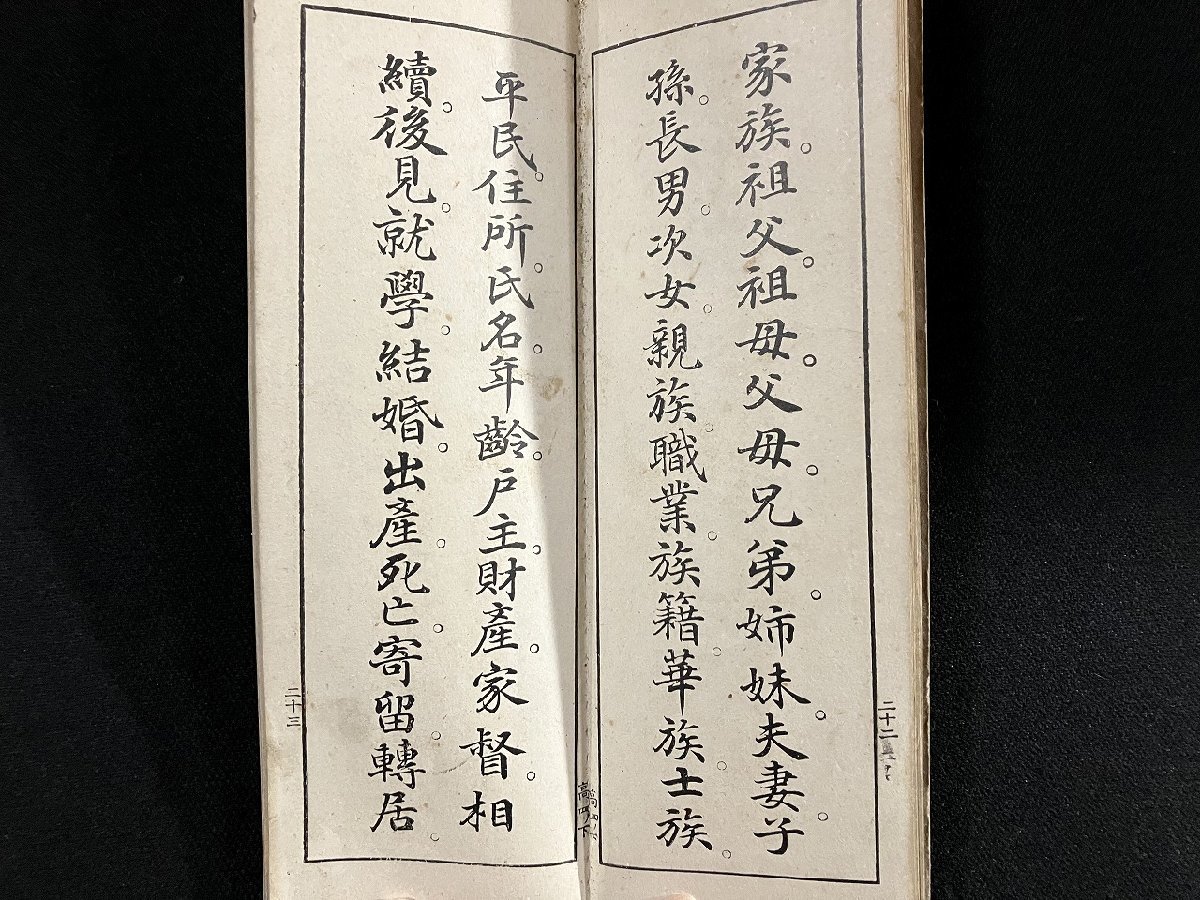 家族。祖父。祖母。父母。兄弟。姉妹。夫妻。子
孫。長男。次女。親族。職業。族籍。華族。士族。
二十二
平民。住所。氏名。年齡。戸主。財產。家督。相
續。後見。就學。結婚。出產。死亡。寄留。轉居
二十三
高四下